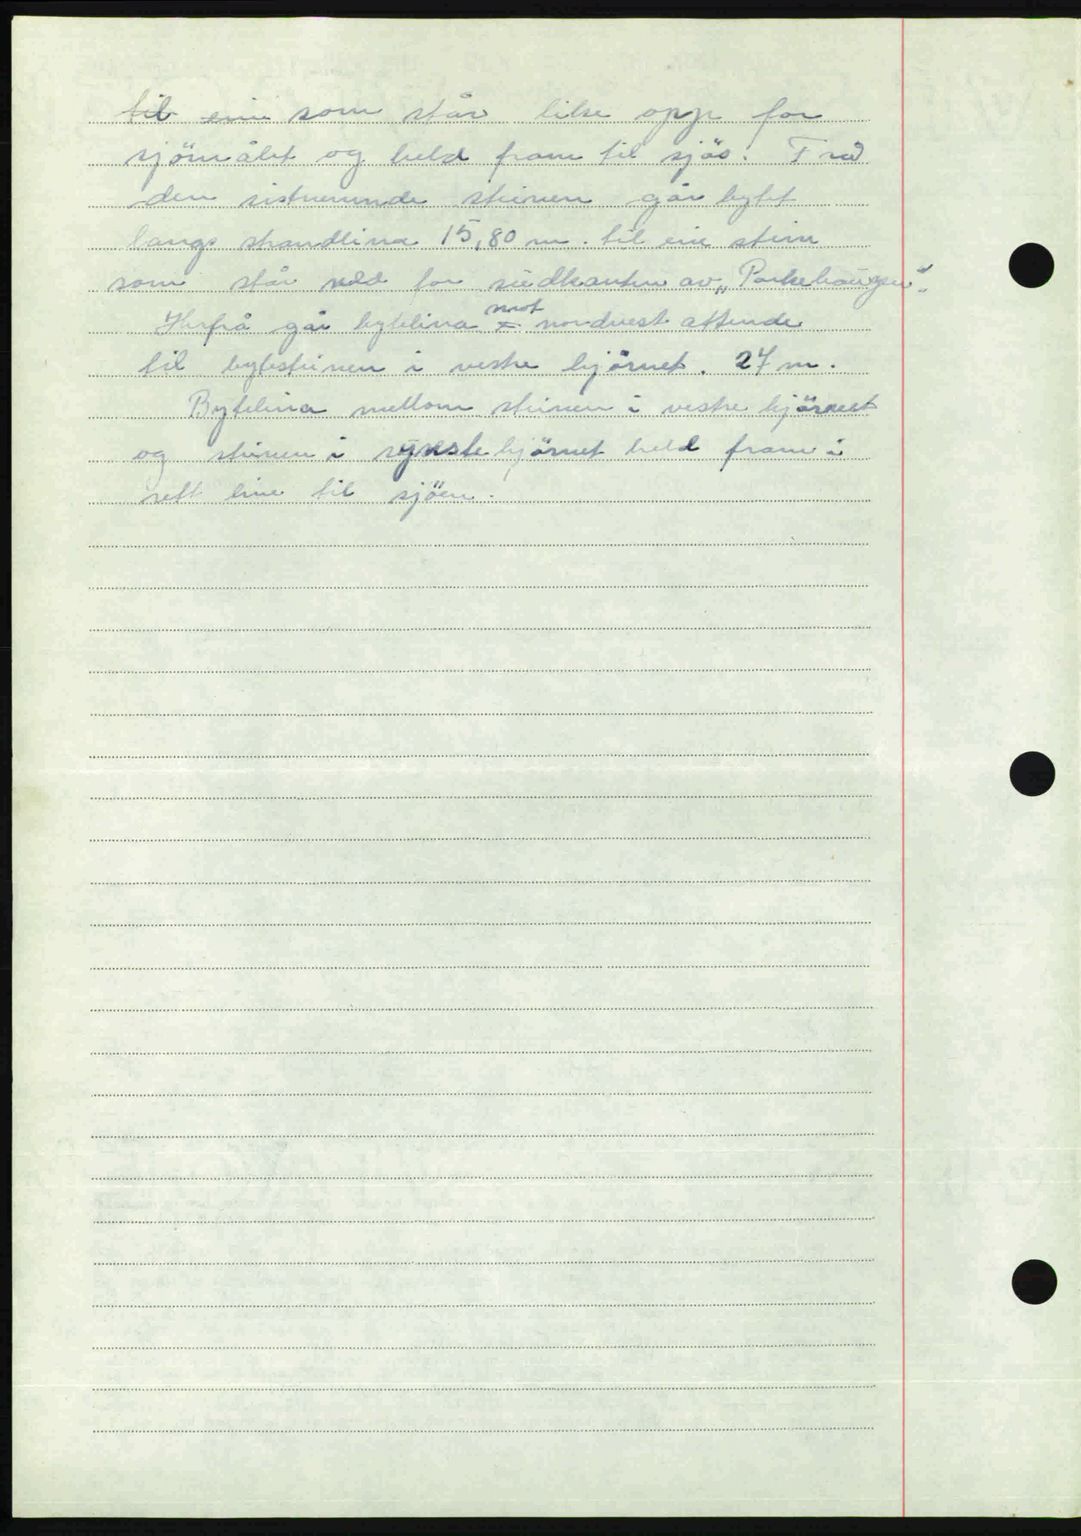 til ein som står like opp for
sjömålet og held fram til sjøs. Frå
den sistnemnde steinen går bytet
langs strandlina 15,80 m. til ein stein
som står ned for sudkanten av
Herfrå går bytelina mot nordvest attende
til bytesteinen i vestre hjörnet. 27 m.
Bytelina mellom steinen i vestre hjörnet
og steinen i hjörnet held fram i
rett line til sjöen.